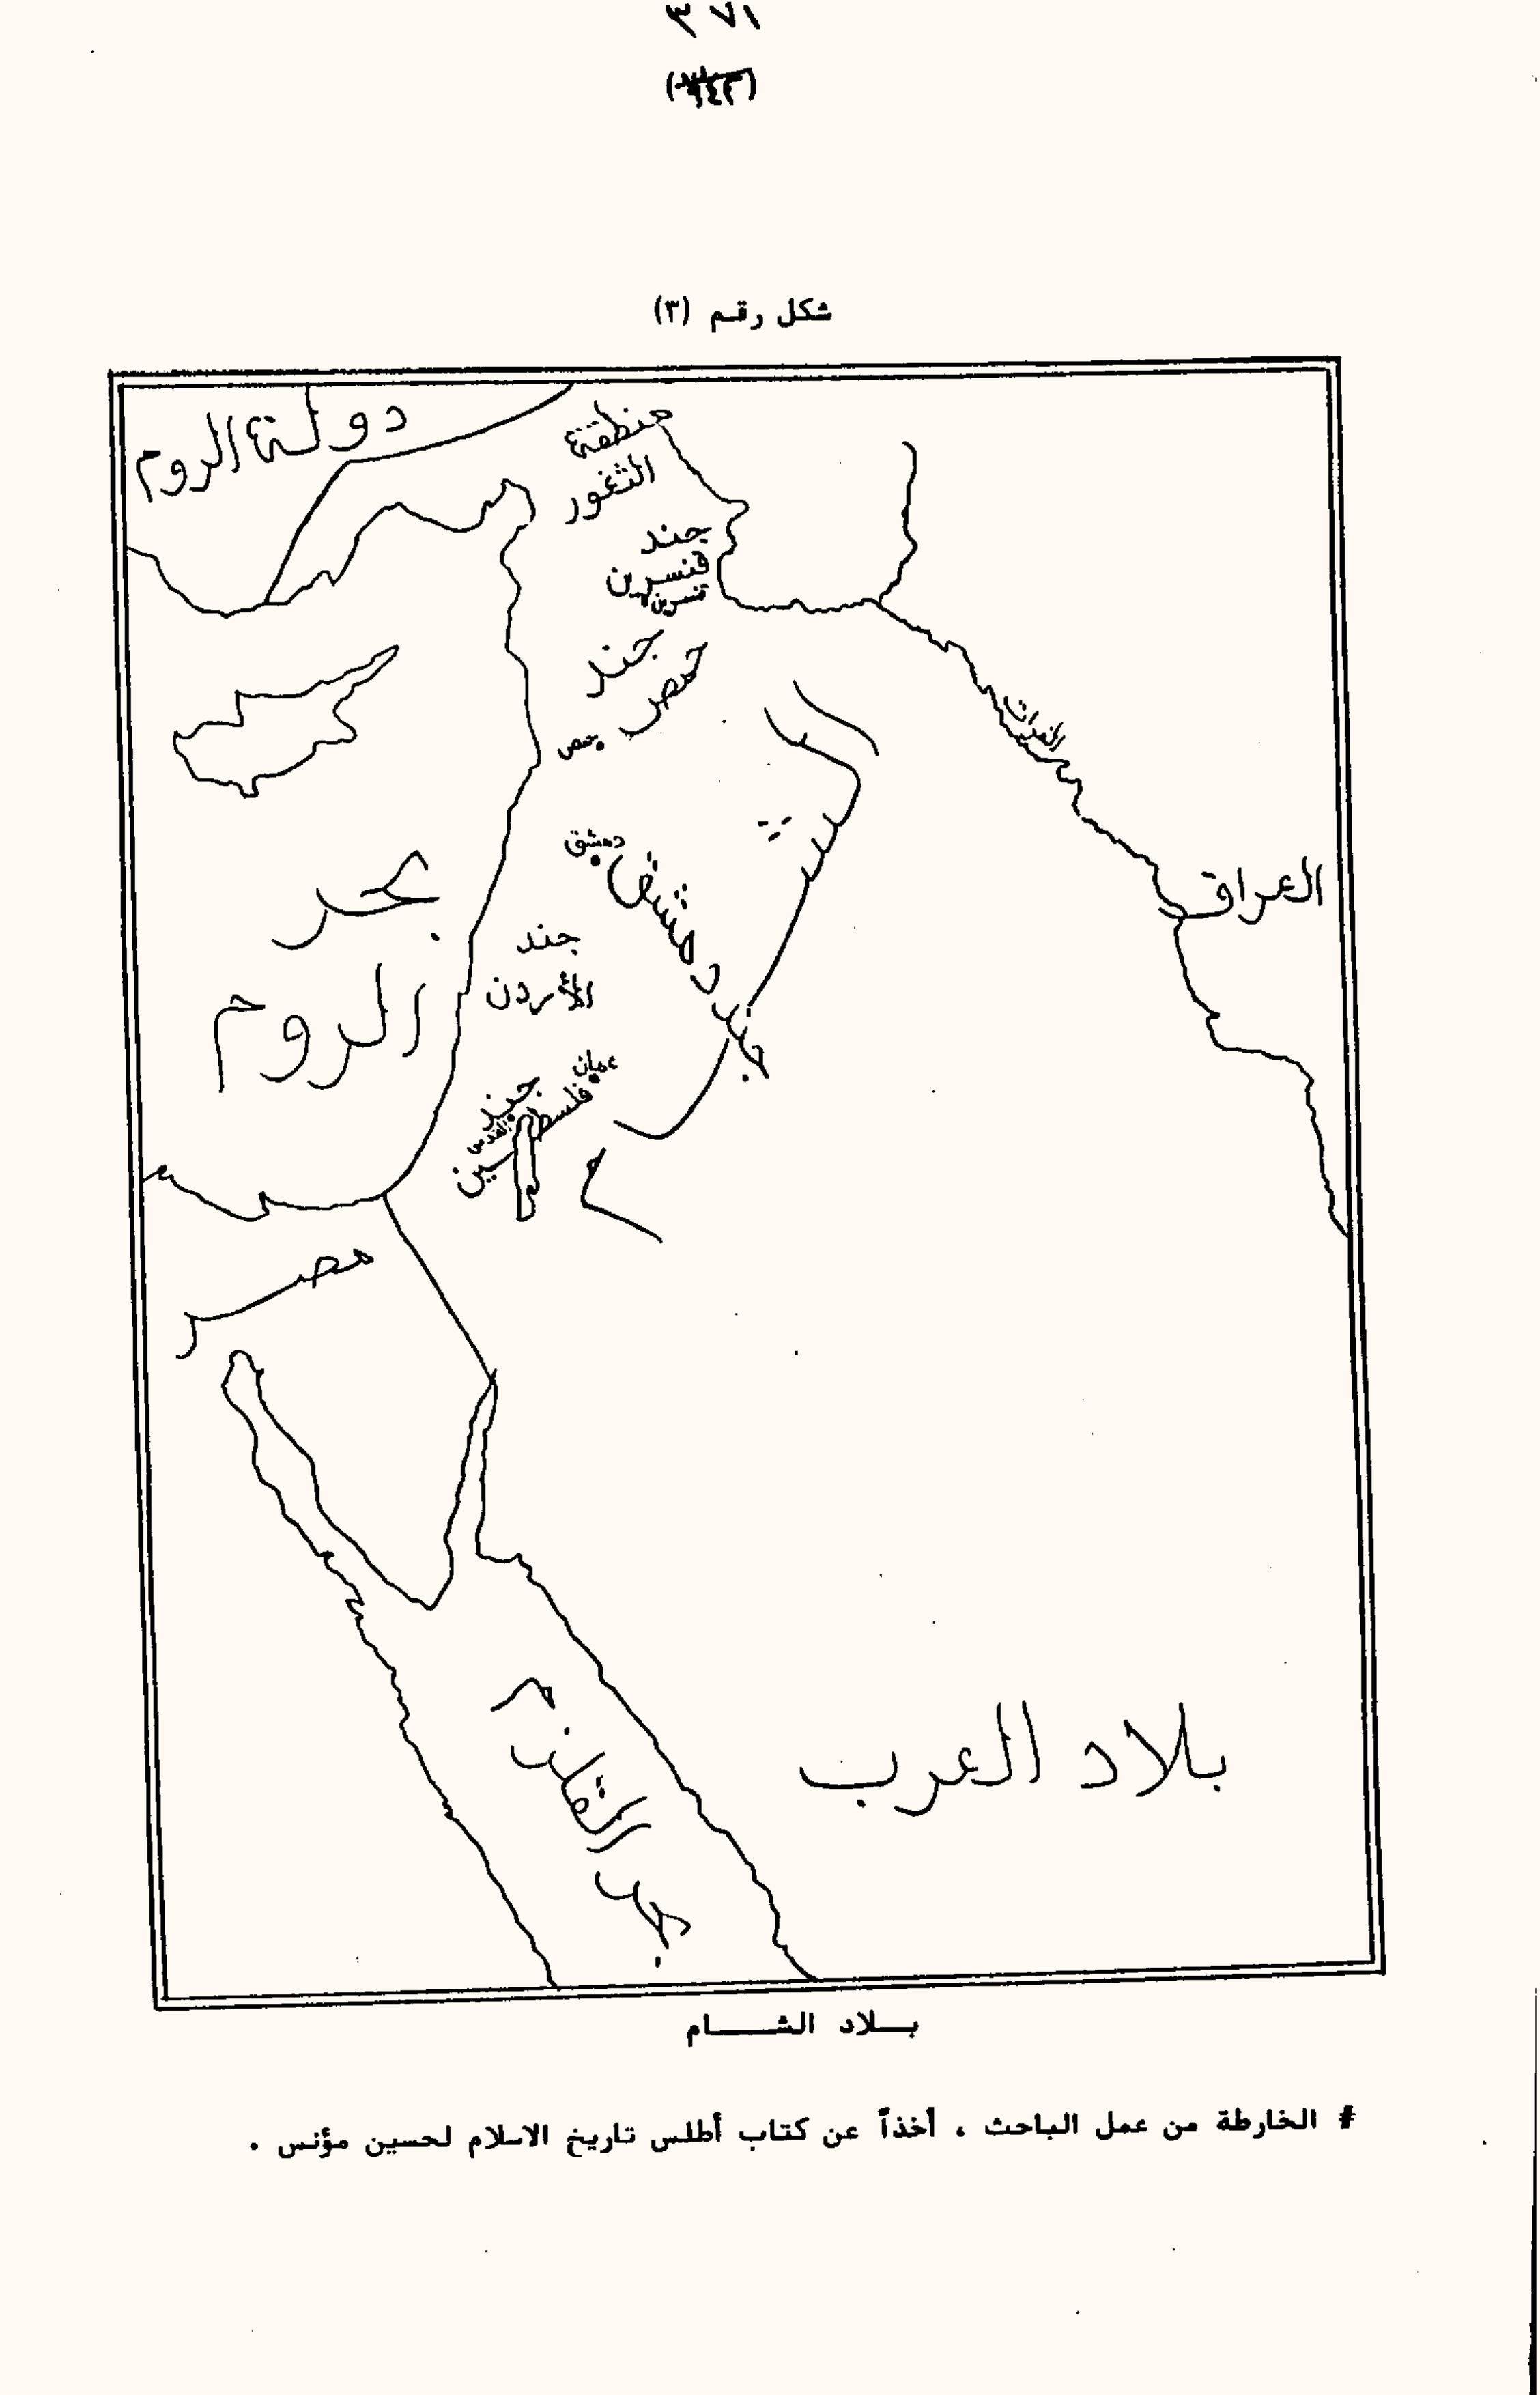 ٣٧١
شكل رقم (٣)
دولة الروم
منطقة
الثغور
جند
قنسرين
قنسرين
جند
حمص
حمص
الفرات
دمشق
جند دمشق
العراق
بحر
الروم
جند
الأردن
عمان
جند
فلسطين
القدس
مصر
بحر القلزم
بلاد العرب
بــلاد الشـــام
# الخارطة من عمل الباحث ، أخذاً عن كتاب أطلس تاريخ الاسلام لحسين مؤنس .